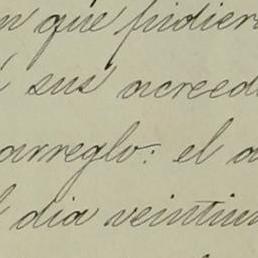 en que pudiera
sus acreed
arreglo: el a
dia veintiun